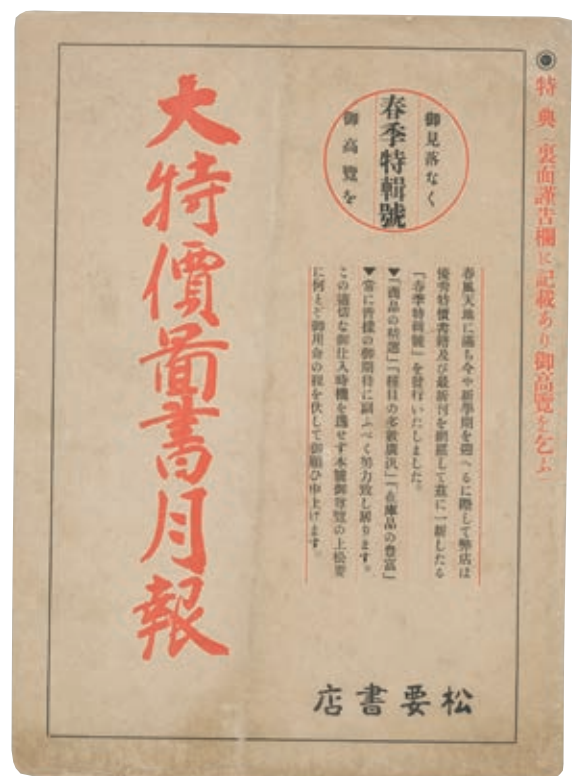 ◉特典「裏面謹告欄に記載あり御高覽を乞ふ」
御見落なく
春季特輯號
御高覽を
春風天地に滿ち今や新學期を迎へるに際して弊店は
優秀特價書籍及び最新刊を網羅して茲に一新したる
『春季特輯號』を發行いたしました。
▼『商品の精選』『種目の多數廣汎』『在庫品の豊富』
▼常に皆樣の御期待に副ふべく努力致し居ります。
この適切な御仕入時機を逸せず本號御尊覽の上松要
に何とぞ御用命の程を伏して御願ひ申上げます。
大特價圖書月報
松要書店